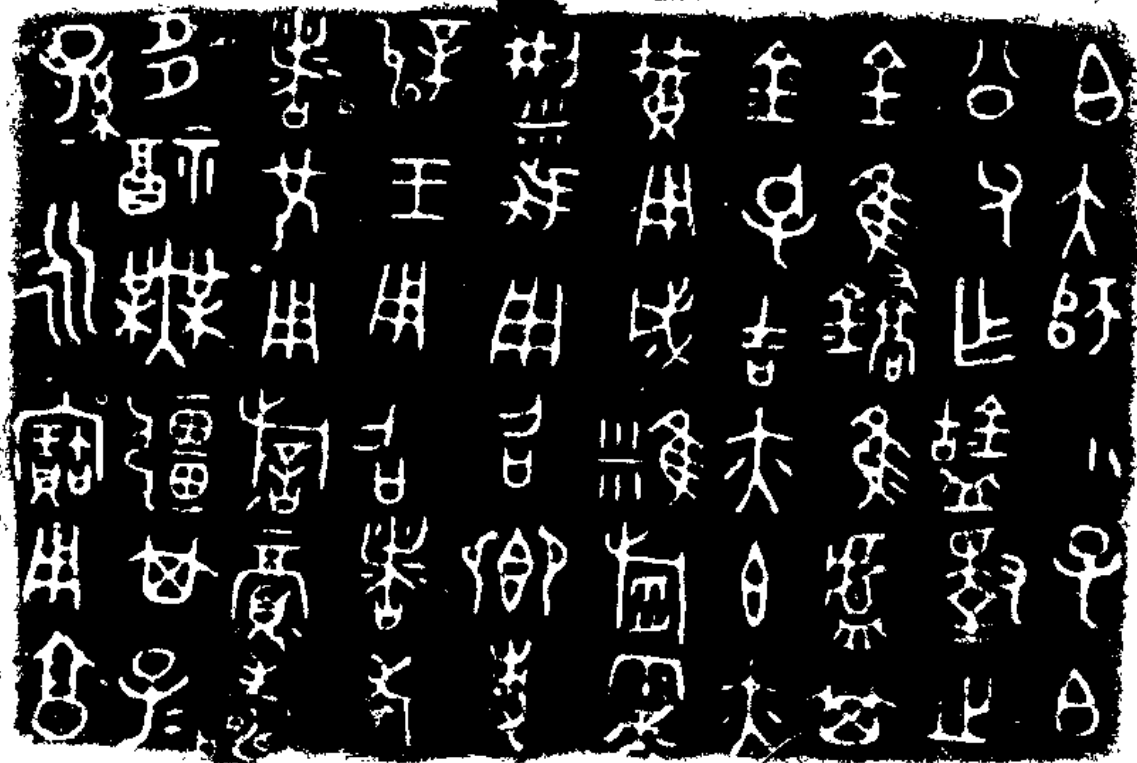 白大師小子白
公父乍簠擇之
金隹鐈隹盧其
金孔吉亦玄亦
黃用成糕稻需
梁我用召卿事
辟王用召者考
者兄用旂眉壽
多福無疆其子＝
孫＝永寶用享